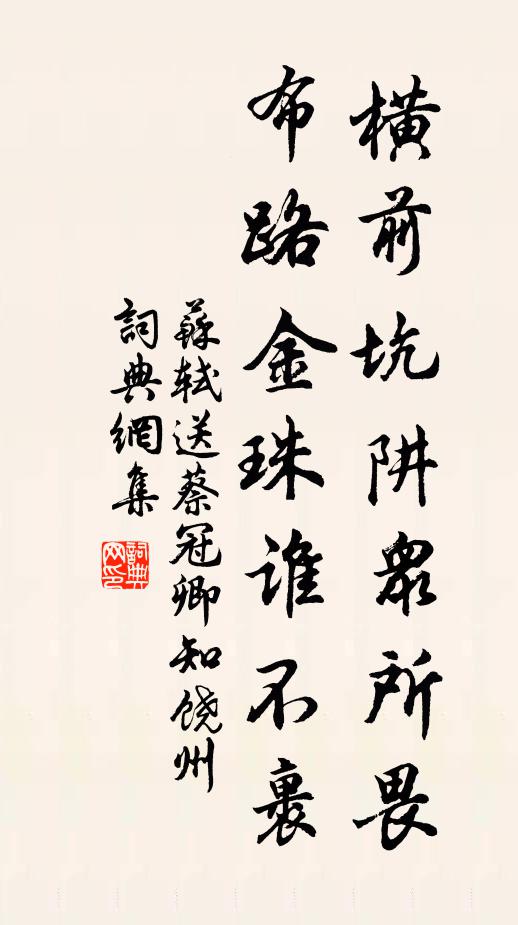 横前坑阱眾所畏
布路金珠誰不裹
蘇軾送蔡冠卿知饶州
詞典網集
詞典
网印